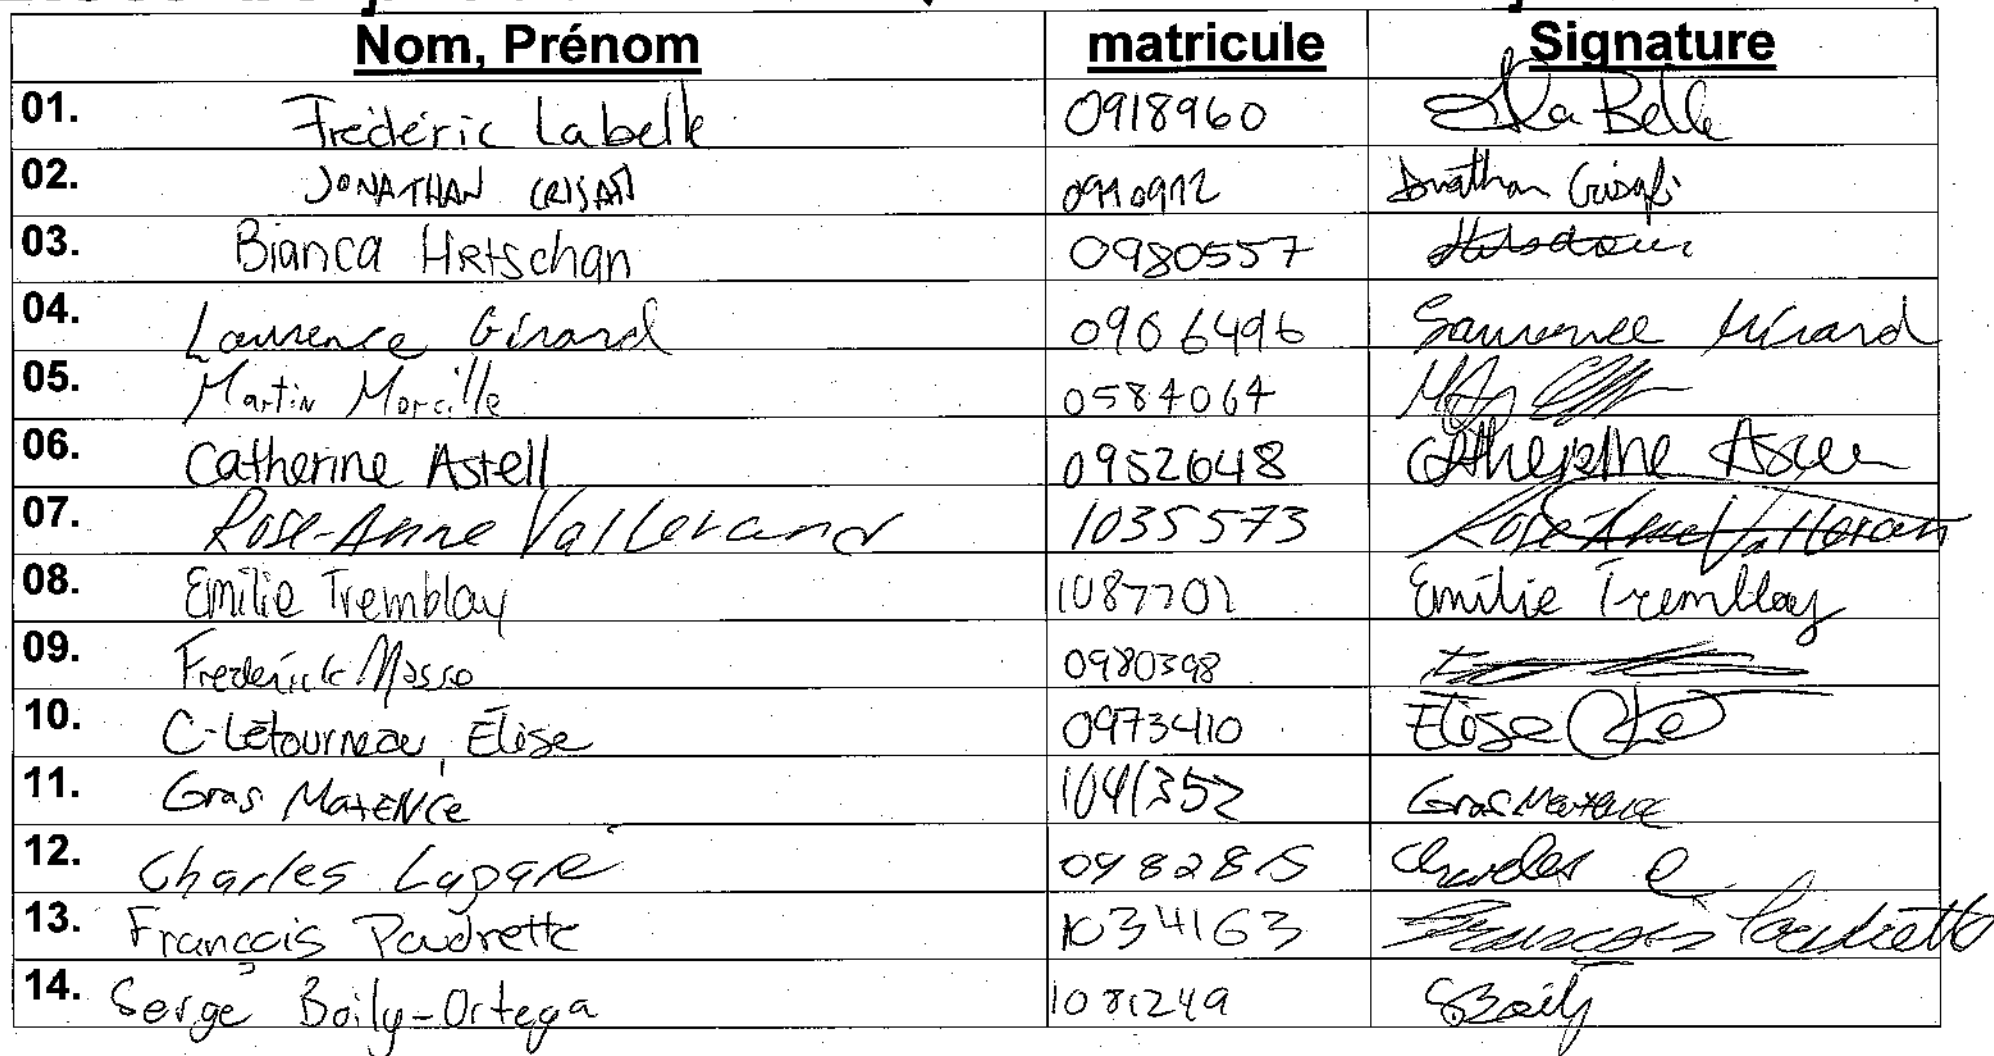 Nom, Prénom matricule Signature
01. Frédéric Labelle 0918960 La Belle
02. JONATHAN CRISAFI 0910912 Jonathan Crisafi
03. Bianca HRtschan 0980557
04. Laurence Girard 0906496 Laurence Girard
05. Martin Morcille 0584064
06. Catherine Astell 0952648 Catherine
07. Rose-Anne Vallerand 1035573 Rose-Anne Vallerand
08. Emilie Tremblay 1087701 Emilie Tremblay
09. Frederick Masse 0980398
10. C-Létourneau Élise 0973410 Élise
11. Gras MaxENCE 1041352 Gras Maxence
12. Charles Lagarè Charles
13. François Paudrette 1034163 François Paudrette
14. Serge Boily-Ortega 1081249 SBoily